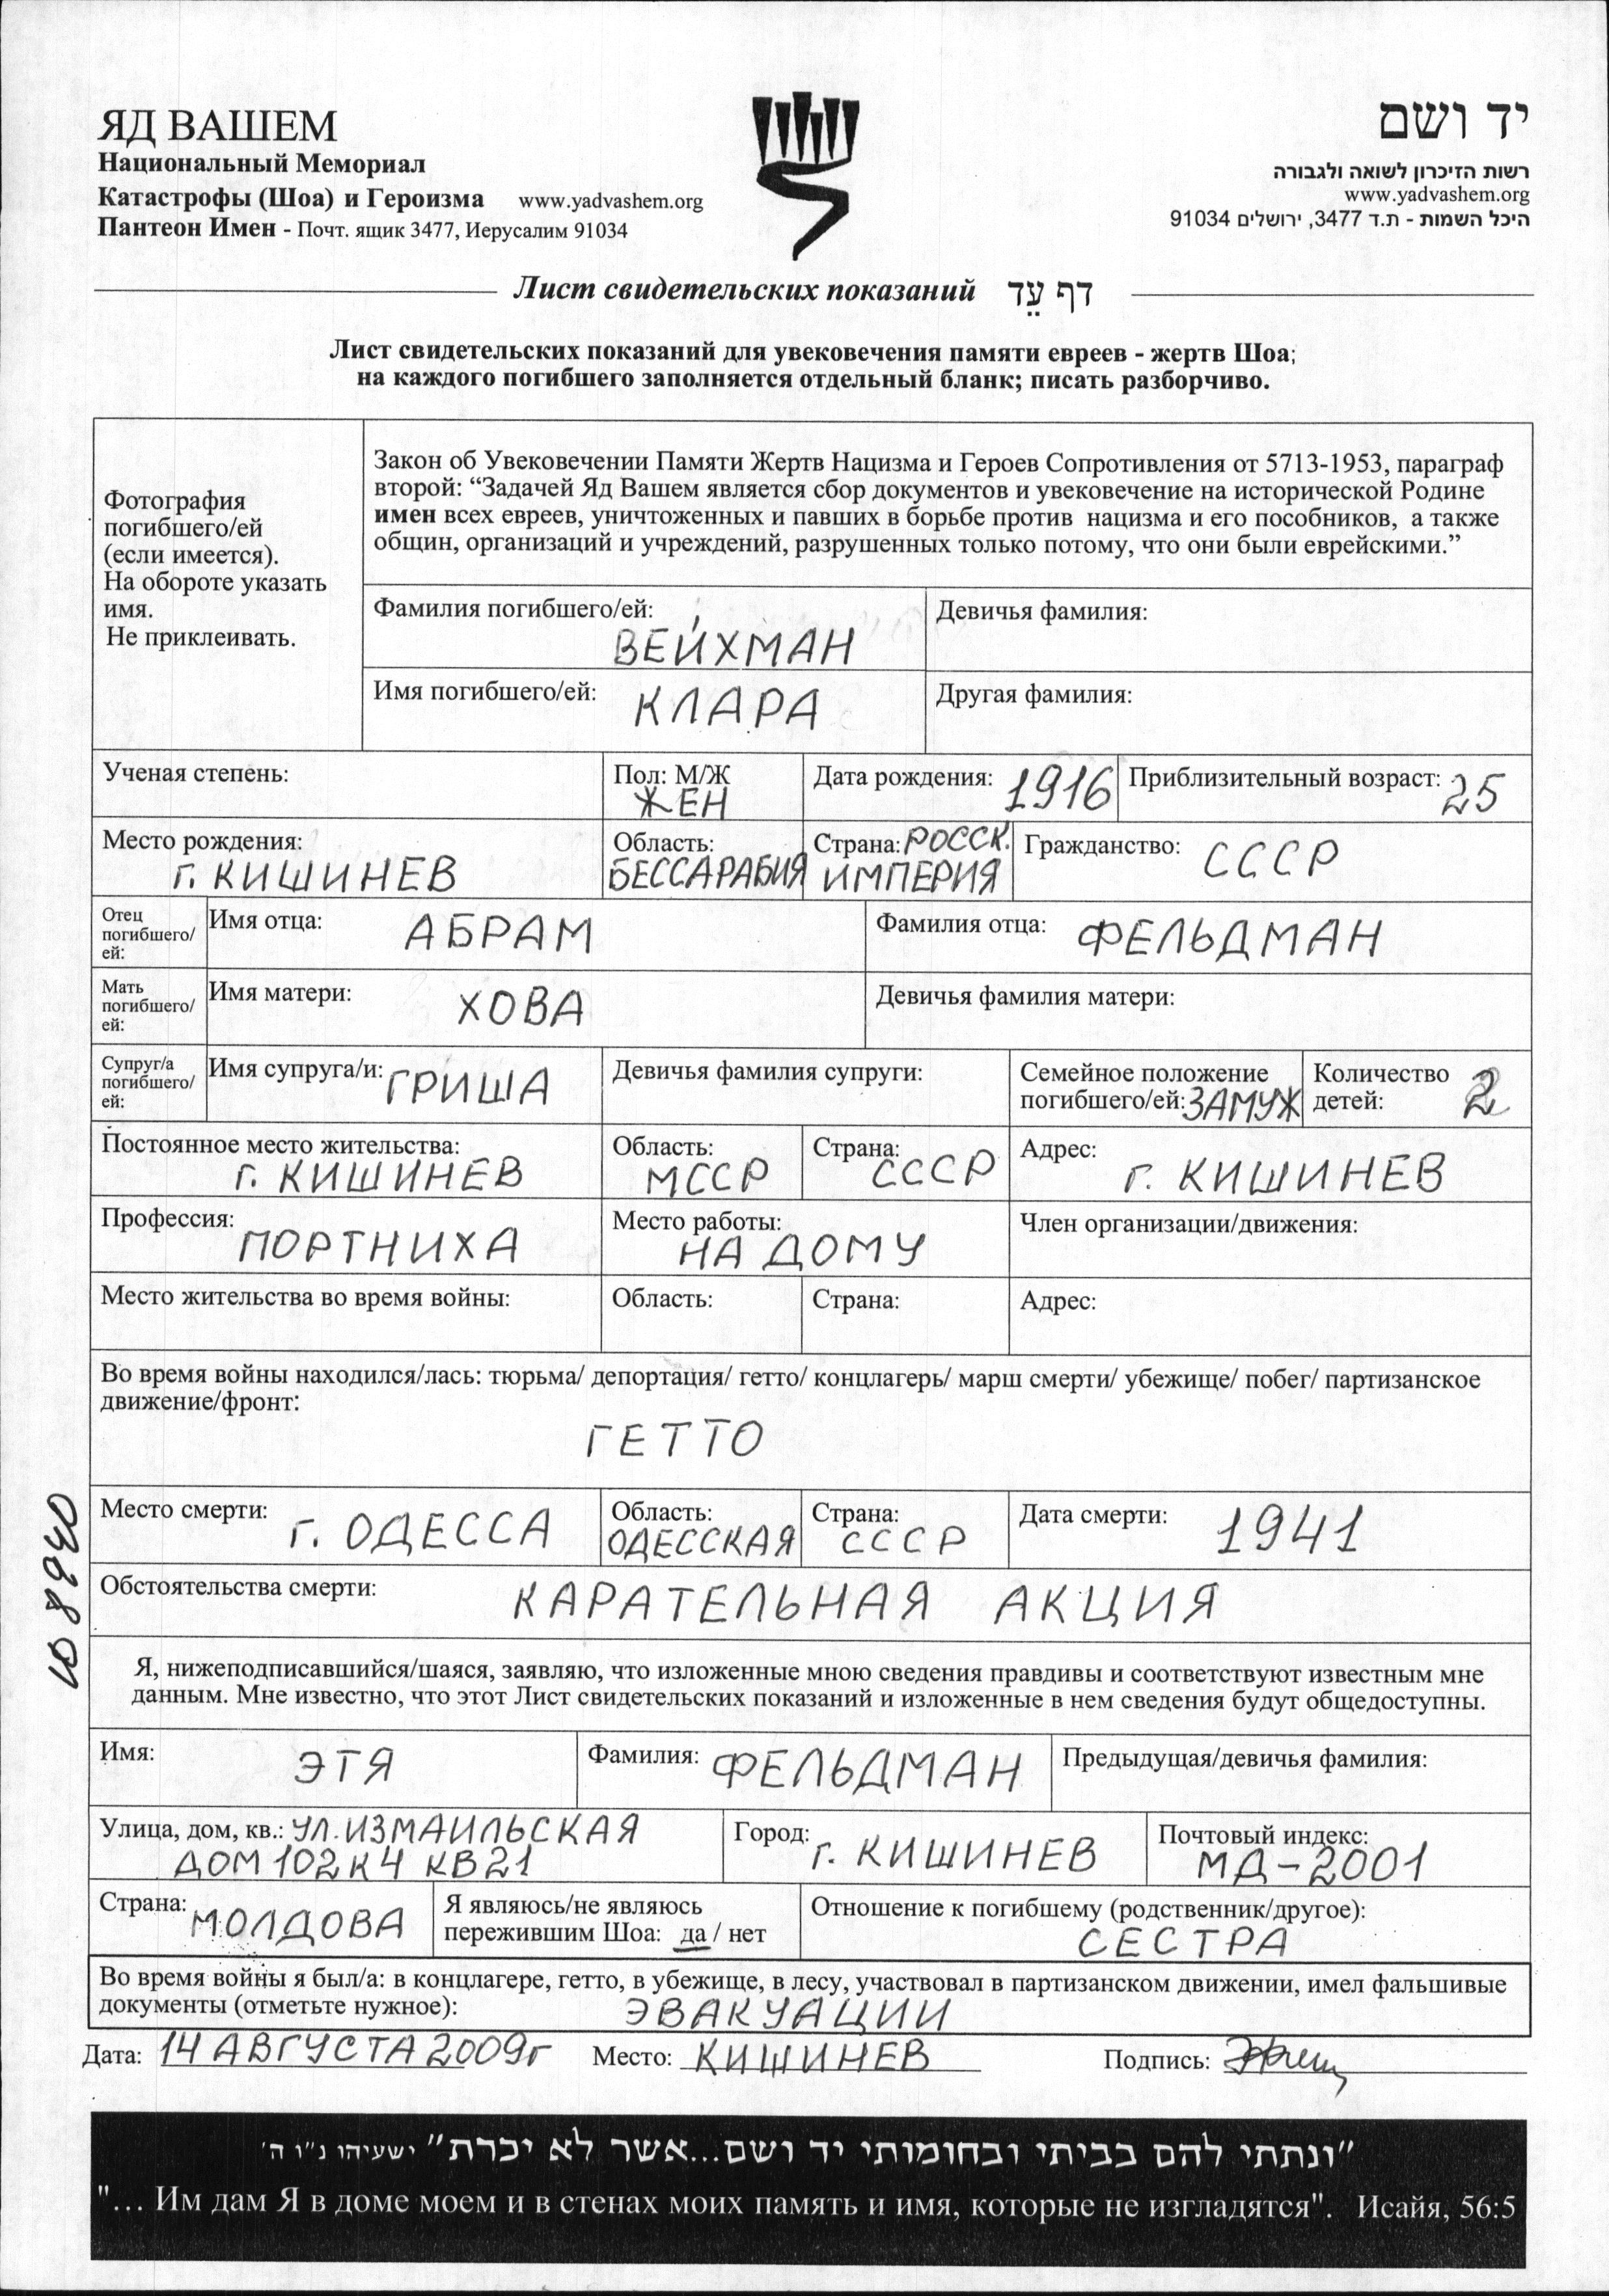 ЯД ВАШЕМ
Национальный Мемориал
Катастрофы (Шоа) и Героизма www.yadvashem.org
Пантеон Имен - Почт. ящик 3477, Иерусалим 91034
יד ושם
רשות הזיכרון לשואה ולגבורה
www.yadvashem.org
היכל השמות - ת.ד 3477, ירושלים 91034
Лист свидетельских показаний דף עֵד
Лист свидетельских показаний для увековечения памяти евреев - жертв Шоа;
на каждого погибшего заполняется отдельный бланк; писать разборчиво.
Фотография
погибшего/ей
(если имеется).
На обороте указать
имя.
Не приклеивать.
Закон об Увековечении Памяти Жертв Нацизма и Героев Сопротивления от 5713-1953, параграф
второй: “Задачей Яд Вашем является сбор документов и увековечение на исторической Родине
имен всех евреев, уничтоженных и павших в борьбе против нацизма и его пособников, а также
общин, организаций и учреждений, разрушенных только потому, что они были еврейскими.”
Фамилия погибшего/ей: ВЕЙХМАН
Девичья фамилия:
Имя погибшего/ей: КЛАРА
Другая фамилия:
Ученая степень:
Пол: М/Ж
ЖЕН
Дата рождения: 1916
Приблизительный возраст: 25
Место рождения:
г. КИШИНЕВ
Область:
БЕССАРАБИЯ
Страна: РОССК.
ИМПЕРИЯ
Гражданство: СССР
Отец
погибшего/
ей:
Имя отца: АБРАМ
Фамилия отца: ФЕЛЬДМАН
Мать
погибшего/
ей:
Имя матери: ХОВА
Девичья фамилия матери:
Супруг/а
погибшего/
ей:
Имя супруга/и: ГРИША
Девичья фамилия супруги:
Семейное положение
погибшего/ей: ЗАМУЖ
Количество
детей: 2
Постоянное место жительства:
г. КИШИНЕВ
Область:
МССР
Страна:
СССР
Адрес:
г. КИШИНЕВ
Профессия:
ПОРТНИХА
Место работы:
НА ДОМУ
Член организации/движения:
Место жительства во время войны:
Область:
Страна:
Адрес:
Во время войны находился/лась: тюрьма/ депортация/ гетто/ концлагерь/ марш смерти/ убежище/ побег/ партизанское
движение/фронт:
ГЕТТО
Место смерти: г. ОДЕССА
Область:
ОДЕССКАЯ
Страна:
СССР
Дата смерти: 1941
Обстоятельства смерти: КАРАТЕЛЬНАЯ АКЦИЯ
Я, нижеподписавшийся/шаяся, заявляю, что изложенные мною сведения правдивы и соответствуют известным мне
данным. Мне известно, что этот Лист свидетельских показаний и изложенные в нем сведения будут общедоступны.
Имя: ЭТЯ
Фамилия: ФЕЛЬДМАН
Предыдущая/девичья фамилия:
Улица, дом, кв.: УЛ. ИЗМАИЛЬСКАЯ
ДОМ 102 К4 КВ21
Город: г. КИШИНЕВ
Почтовый индекс:
МД-2001
Страна: МОЛДОВА
Я являюсь/не являюсь
пережившим Шоа: да / нет
Отношение к погибшему (родственник/другое):
СЕСТРА
Во время войны я был/а: в концлагере, гетто, в убежище, в лесу, участвовал в партизанском движении, имел фальшивые
документы (отметьте нужное): ЭВАКУАЦИИ
Дата: 14 АВГУСТА 2009г Место: КИШИНЕВ Подпись:
"ונתתי להם בביתי ובחומותי יד ושם...אשר לא יכרת" ישעיהו נ"ו ה'
"... Им дам Я в доме моем и в стенах моих память и имя, которые не изгладятся". Исайя, 56:5